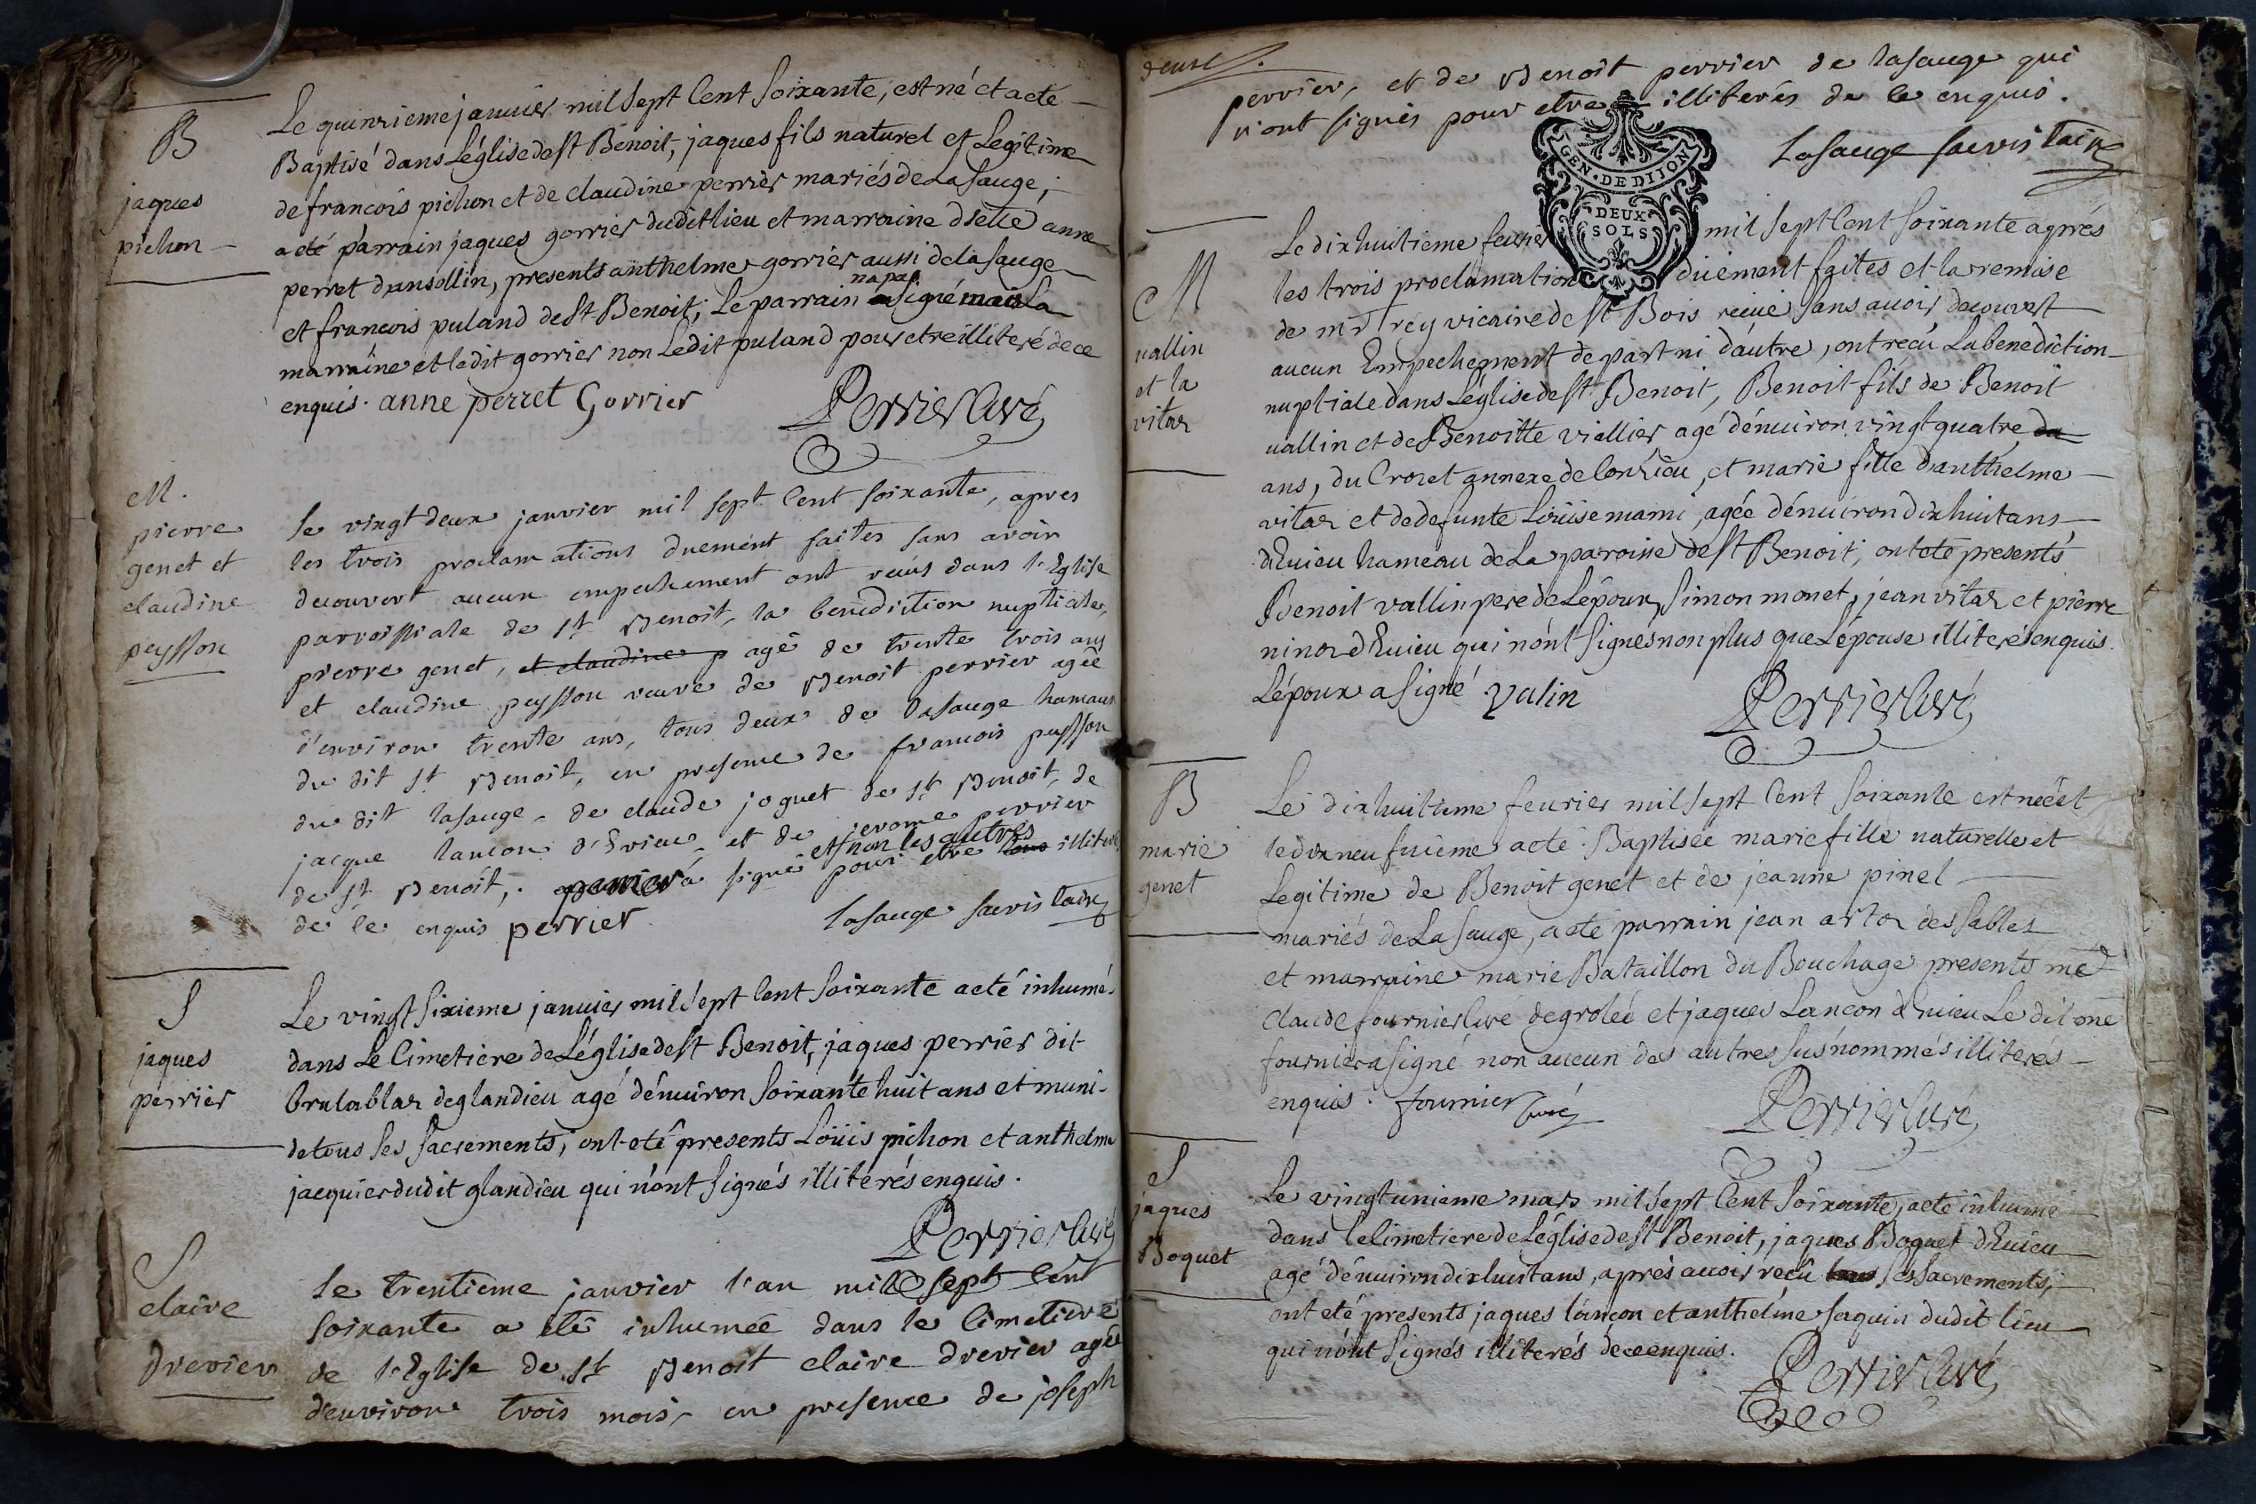 B
jaques
pichon
Le quinzieme janvier mil sept Cent soixante, est né et a eté
Baptisé dans L'église de st Benoit, jaques fils naturel et Legitime
de francois pichon et de claudine perrier mariés de La sauge,
a eté parrain jaques gorrier dudit lieu et marraine dlle anne
perret d'ansollin, presents anthelme gorrier aussi de la sauge
et francois puland de st Benoit; Le parrain n'a pas signé mais La
marraine et ledit gorrier non Ledit puland pour etre illiteré de ce
enquis. anne perret Gorrier Perrier Curé
M.
pierre
genet et
claudine
peysson
le vingt deux janvier mil sept Cent soixante, apres
les trois proclamations duement faites sans avoir
decouvert aucun empechement ont reçus dans l'Eglise
parroissiale de st Benoit, la benediction nuptiale,
pierre genet, et claudine p agé de trente trois ans
et claudine peysson veuve de Benoit perrier agée
d'environ trente ans, tous deux de lasauge hamaux
du dit st Benoit, en presence de francois peysson
du dit lasauge, de claude joguet de st Benoit, de
jacque lancon d'Evieu, et de jerome perrier
de st Benoit, perrier a signé et non les autres pour etre tous illiteres
de ce enquis perrier lasauge sacristain
S
jaques
perrier
Le vingt sixieme janvier mil sept Cent soixante a eté inhumé
dans Le Cimetiere de L'église de st Benoit, jaques perrier dit
brulablaz de glandieu agé d'enuiron soixante huit ans et muni
de tous ses sacrements, ont eté presents Loüis pichon et anthelme
jacquier dudit glandieu qui n'ont signés illiterés enquis.
Perrier Curé
S
claire
Drevier
le trentieme janvier l'an mil sept Cent
soixante a eté inhumée dans le Cimetiere
de l'Eglise de st Benoit claire drevier agé
d'environ trois mois, en presence de joseph
deux
perrier, et de Benoit perrier de lasauge qui
n'ont signés pour etre illiterés de ce enquis.
lasauge sacristain
GEN. DE DIJON
DEUX
SOLS
M
vallin
et la
vitaz
Le dix huitieme feurier mil sept Cent soixante aprés
les trois proclamations duëment faites et la remise
de mr rey vicaire de st Bois reçue sans auoir decouvert
aucun Empechement de part ni d'autre, ont reçû La benediction
nuptiale dans L'église de st Benoit, Benoit fils de Benoit
vallin et de Benoitte viallier agé d'enuiron vingt quatre da
ans, du Crozet annexe de Conzieu, et marie fille d'anthelme
vitaz et de defunte Loüise mami, agée d'enuiron dix huit ans
d'Euieu hameau de La paroisse de st Benoit, ont eté presents
Benoit vallin pere de L'époux, simon monet, jean vitaz et pierre
ninoz d'Euieu qui n'ont signés non plus que L'épouse illiterés enquis.
L'époux a signé valin Perrier Curé
B
marie
genet
Le dix huitieme feurier mil sept Cent soixante est née et
le dix neufuième a eté Baptisée marie fille naturelle et
Legitime de Benoit genet et de jeanne pinel
mariés de La sauge, a eté parrain jean artoz des sables
et marraine marie Bataillon du Bouchage presents me
Claude fournier Curé de groleé et jaques Lancon d'Euieu Le dit me
fournier a signé non aucun des autres susnommés illiteres
enquis. fournier curé Perrier Curé
S
jaques
Boquet
Le vingt unieme mars mil sept Cent soixante, a eté inhumé
dans Le Cimetiere de L'église de st Benoit, jaques Boquet d'Euieu
agé d'enuiron dix huit ans, aprés auoir reçû tous ses sacrements,
ont eté presents jaques lancon et anthelme saquin dudit lieu
qui n'ont signés illiterés de ce enquis.
Perrier Curé